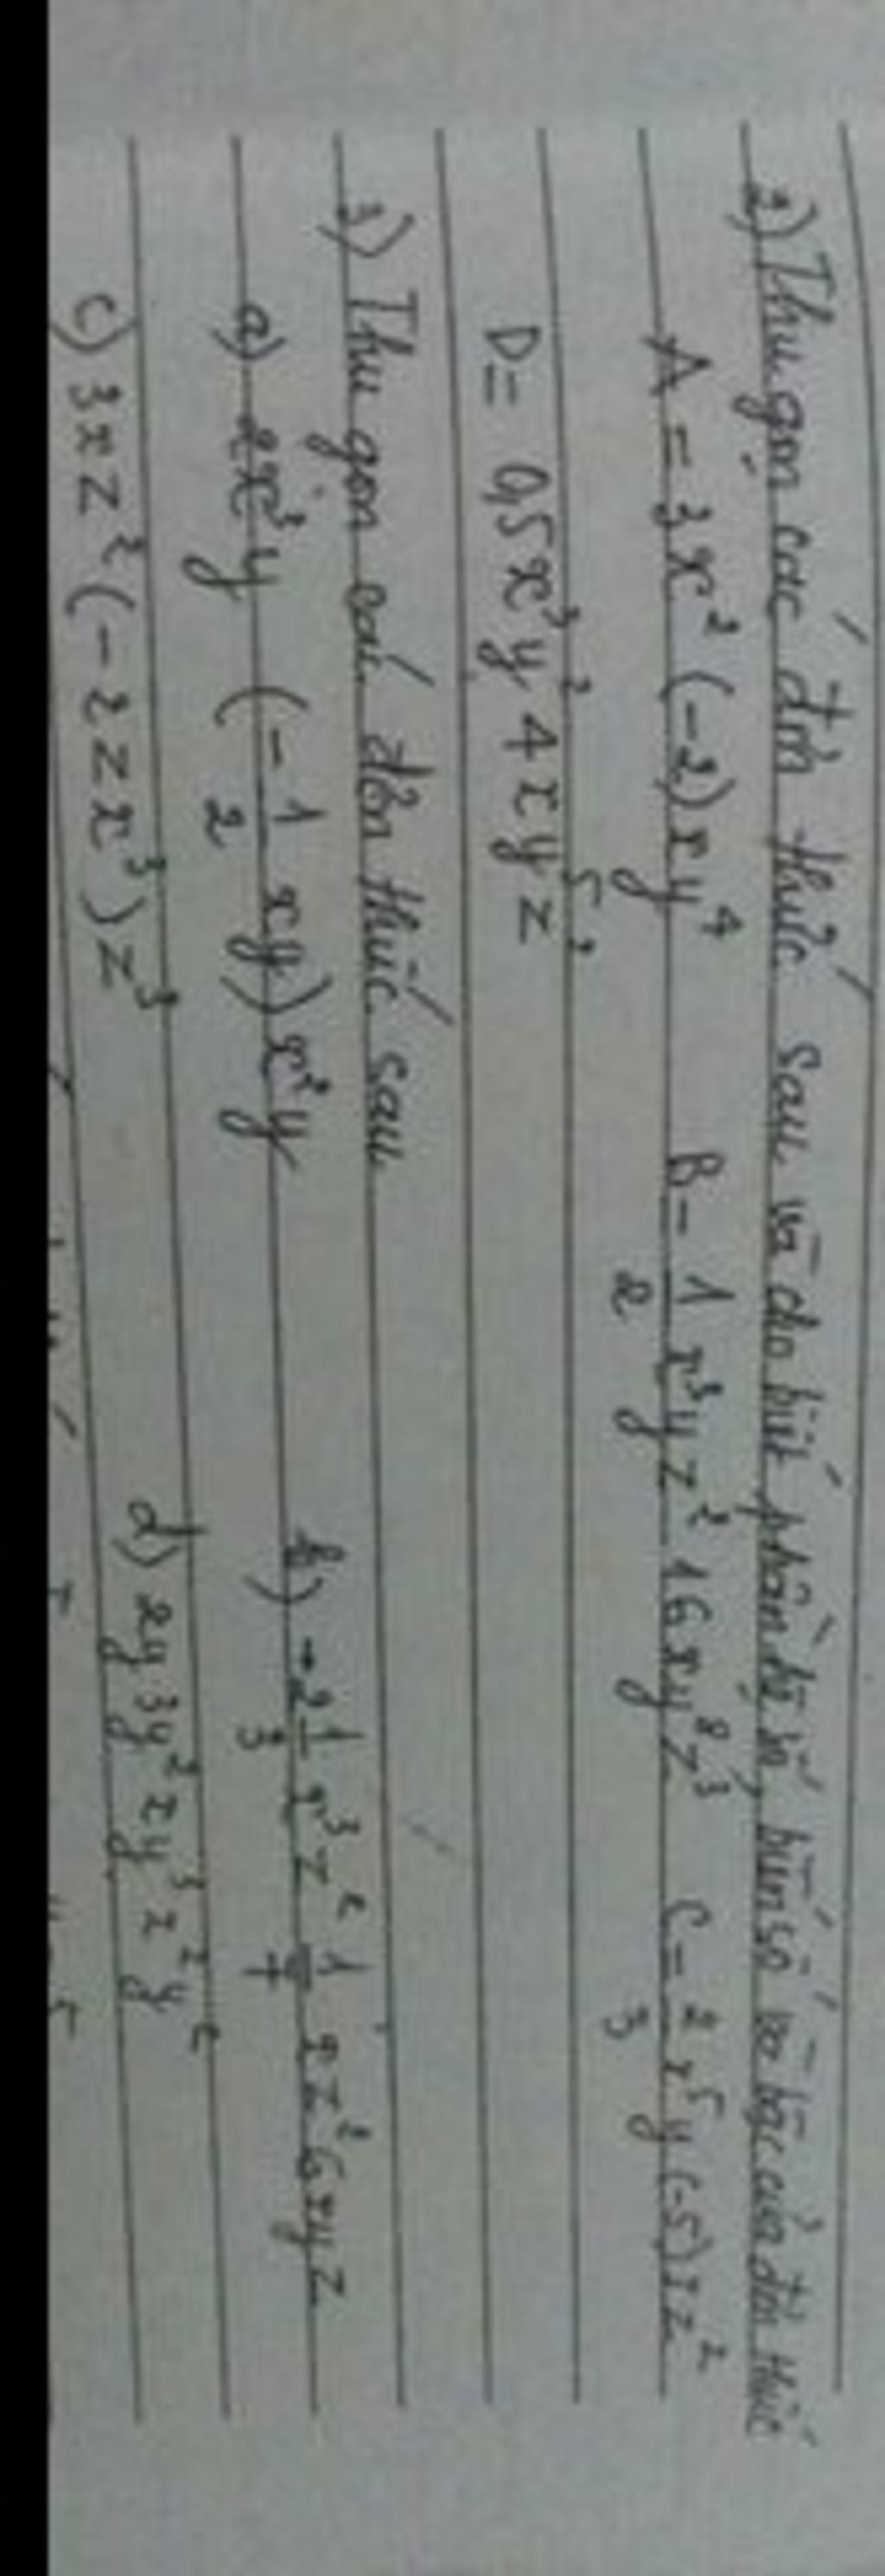 2) Thu gọn các đơn thức sau và cho biết phần hệ số, biến số và bậc của đơn thức
A = 3x² (-2)xy⁴ B = 1/2 x³yz² 16xy⁸z³ C = 2/3 x⁵y(-5)xz²
D = 0,5x³y² 4xy⁵z²
3) Thu gọn các đơn thức sau
a) 2x³y (-1/2 xy) x²y b) -2 1/3 x³z² 1/7 xz² 6xyz
c) 3xz²(-2zx³)z³ d) xy3y²xy³x²y²